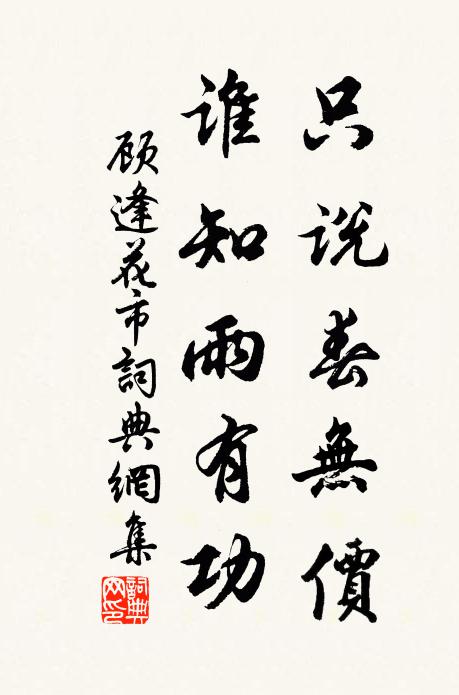 只說春無價
誰知雨有功
顧逢花市詞典網集
詞典網印